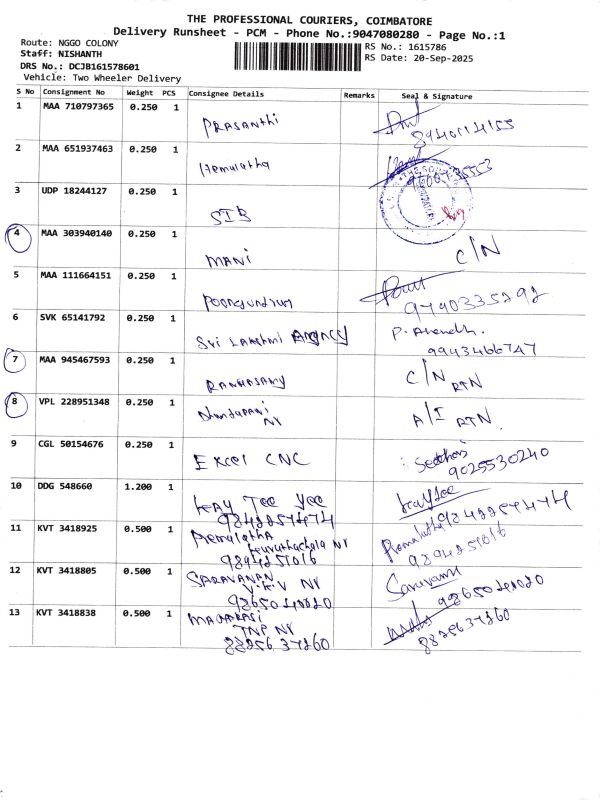 THE PROFESSIONAL COURIERS, COIMBATORE
Delivery Runsheet - PCM - Phone No.:9047080280 - Page No.:1
Route: NGGO COLONY
Staff: NISHANTH
DRS No.: DCJB161578601
Vehicle: Two Wheeler Delivery
RS No.: 1615786
RS Date: 20-Sep-2025
S No Consignment No Weight PCS Consignee Details Remarks Seal & Signature
1 MAA 710797365 0.250 1 PRASANThi
8940114155
2 MAA 651937463 0.250 1 Hemulatha
3 UDP 18244127 0.250 1 SIB
4 MAA 303940140 0.250 1 MANI C/N
5 MAA 111664151 0.250 1
6 SVK 65141792 0.250 1 Sri LAKShmi AgENCY
9943466747
7 MAA 945467593 0.250 1 RANGASAMY C/N RTN
8 VPL 228951348 0.250 1 A/I RTN
NY
9 CGL 50154676 0.250 1 EXCEL CNC
9025530240
10 DDG 548660 1.200 1 KAY TEE YEE kaytee
11 KVT 3418925 0.500 1
9894251016 9894251016
12 KVT 3418805 0.500 1 SARAVANAN
V.K.V NY
9865041020 9865041020
13 KVT 3418838 0.500 1
TNP NY
8825637260 8825637260